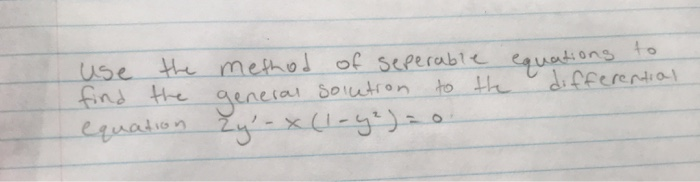 use the method of seperable equations to
find the general solution to the differential
equation 2y' - x(1-y²)=0.